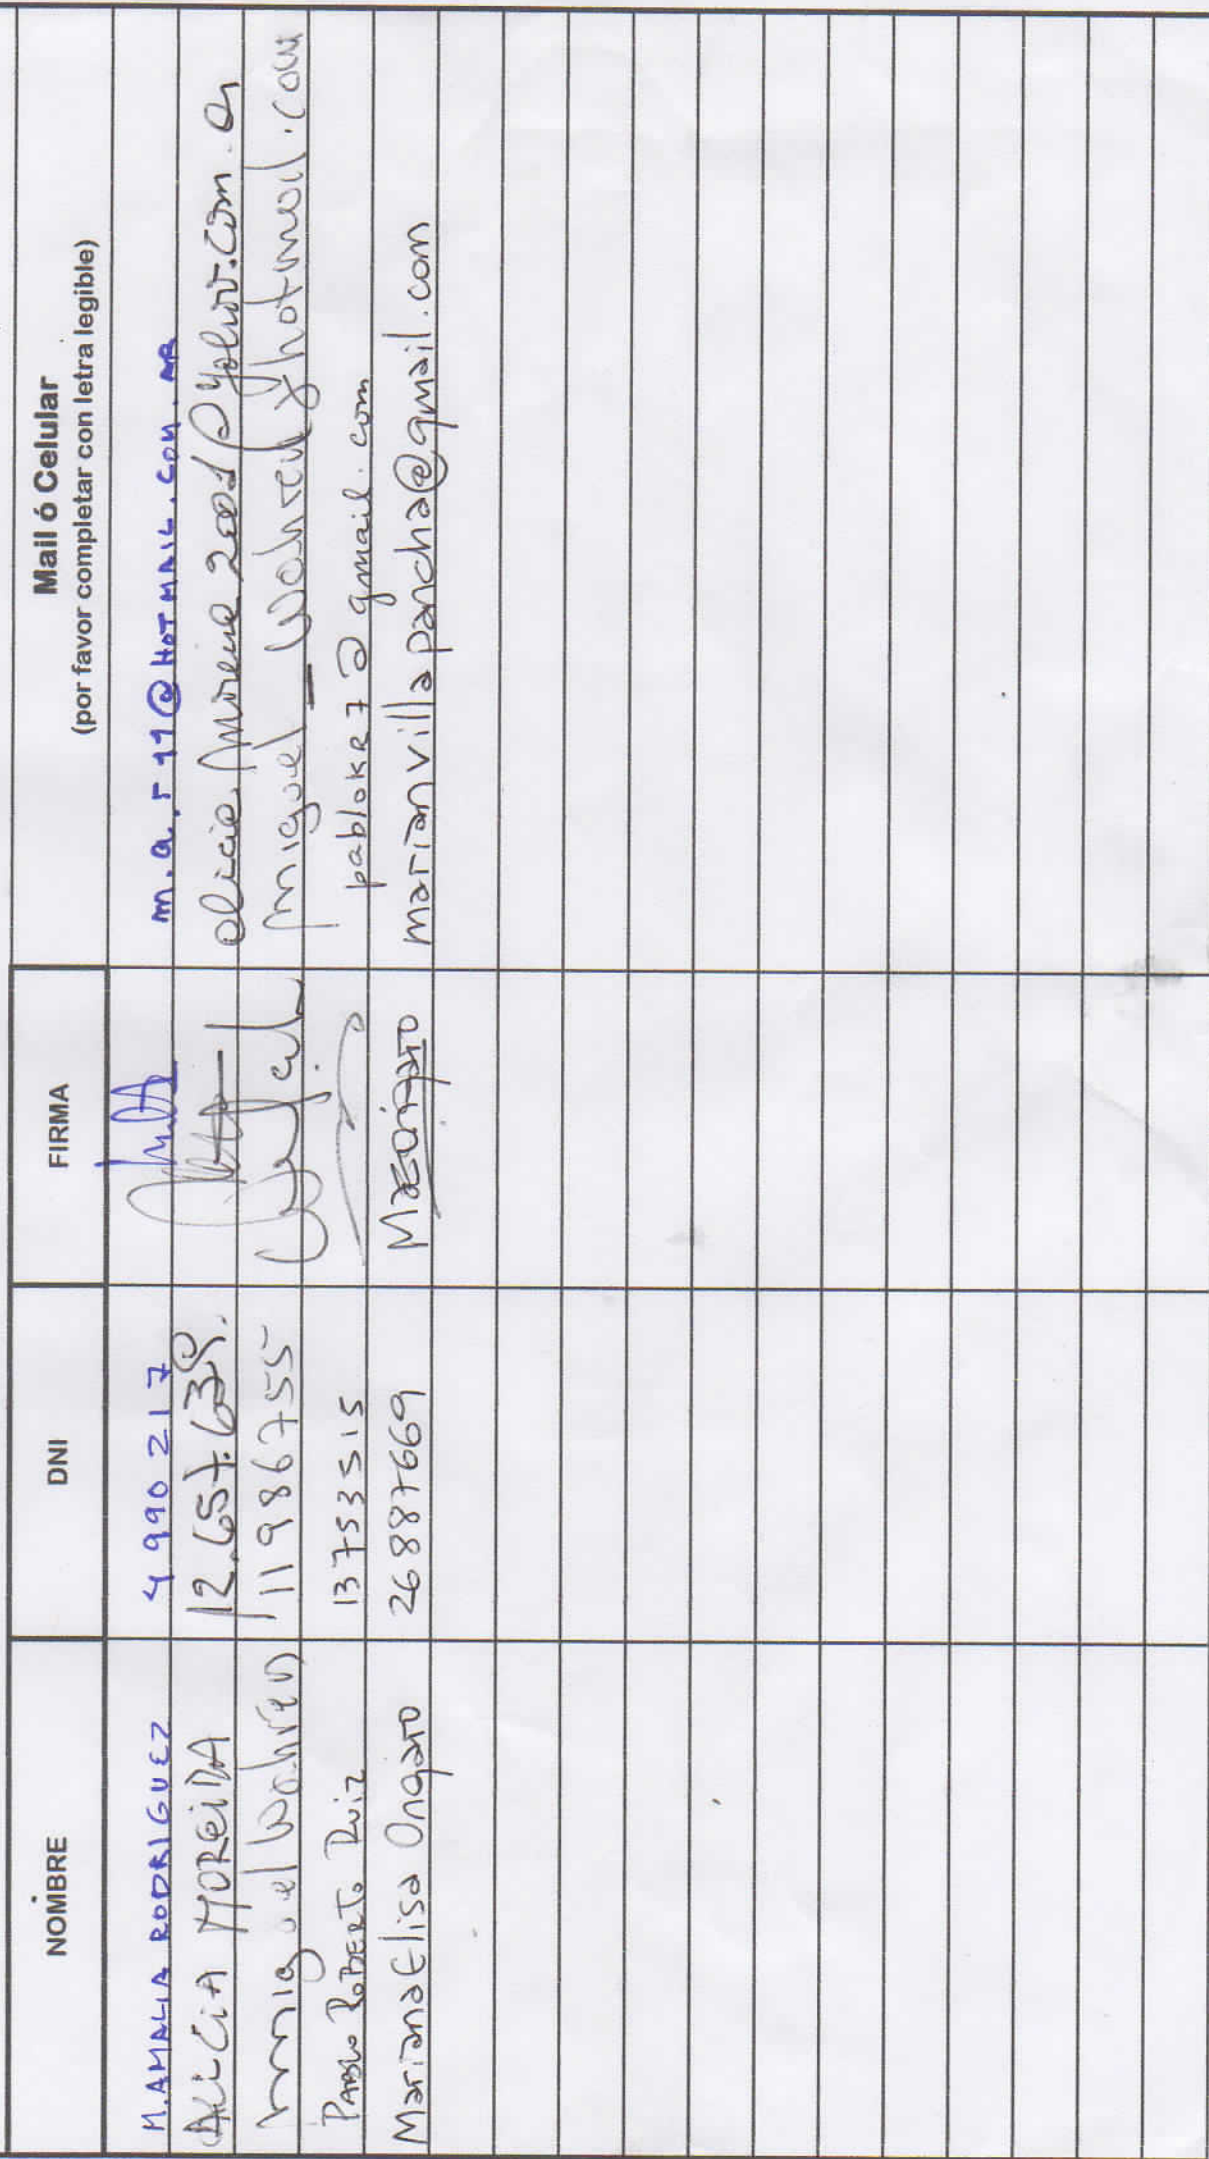 NOMBRE DNI FIRMA Mail ó Celular
(por favor completar con letra legible)
M. AMALIA RODRIGUEZ 4 990 217 m.a.r99@HOTMAIL.COM.AR
ALICIA MOREIRA 12.657.638.
miguel Wahren 11986755 miguel_wahren@hotmail.com
PABLO ROBERTO Ruiz 13753515 pablokr7@gmail.com
Mariana Elisa Ongaro 26887669 MaEOngaro marianvillapancha@gmail.com